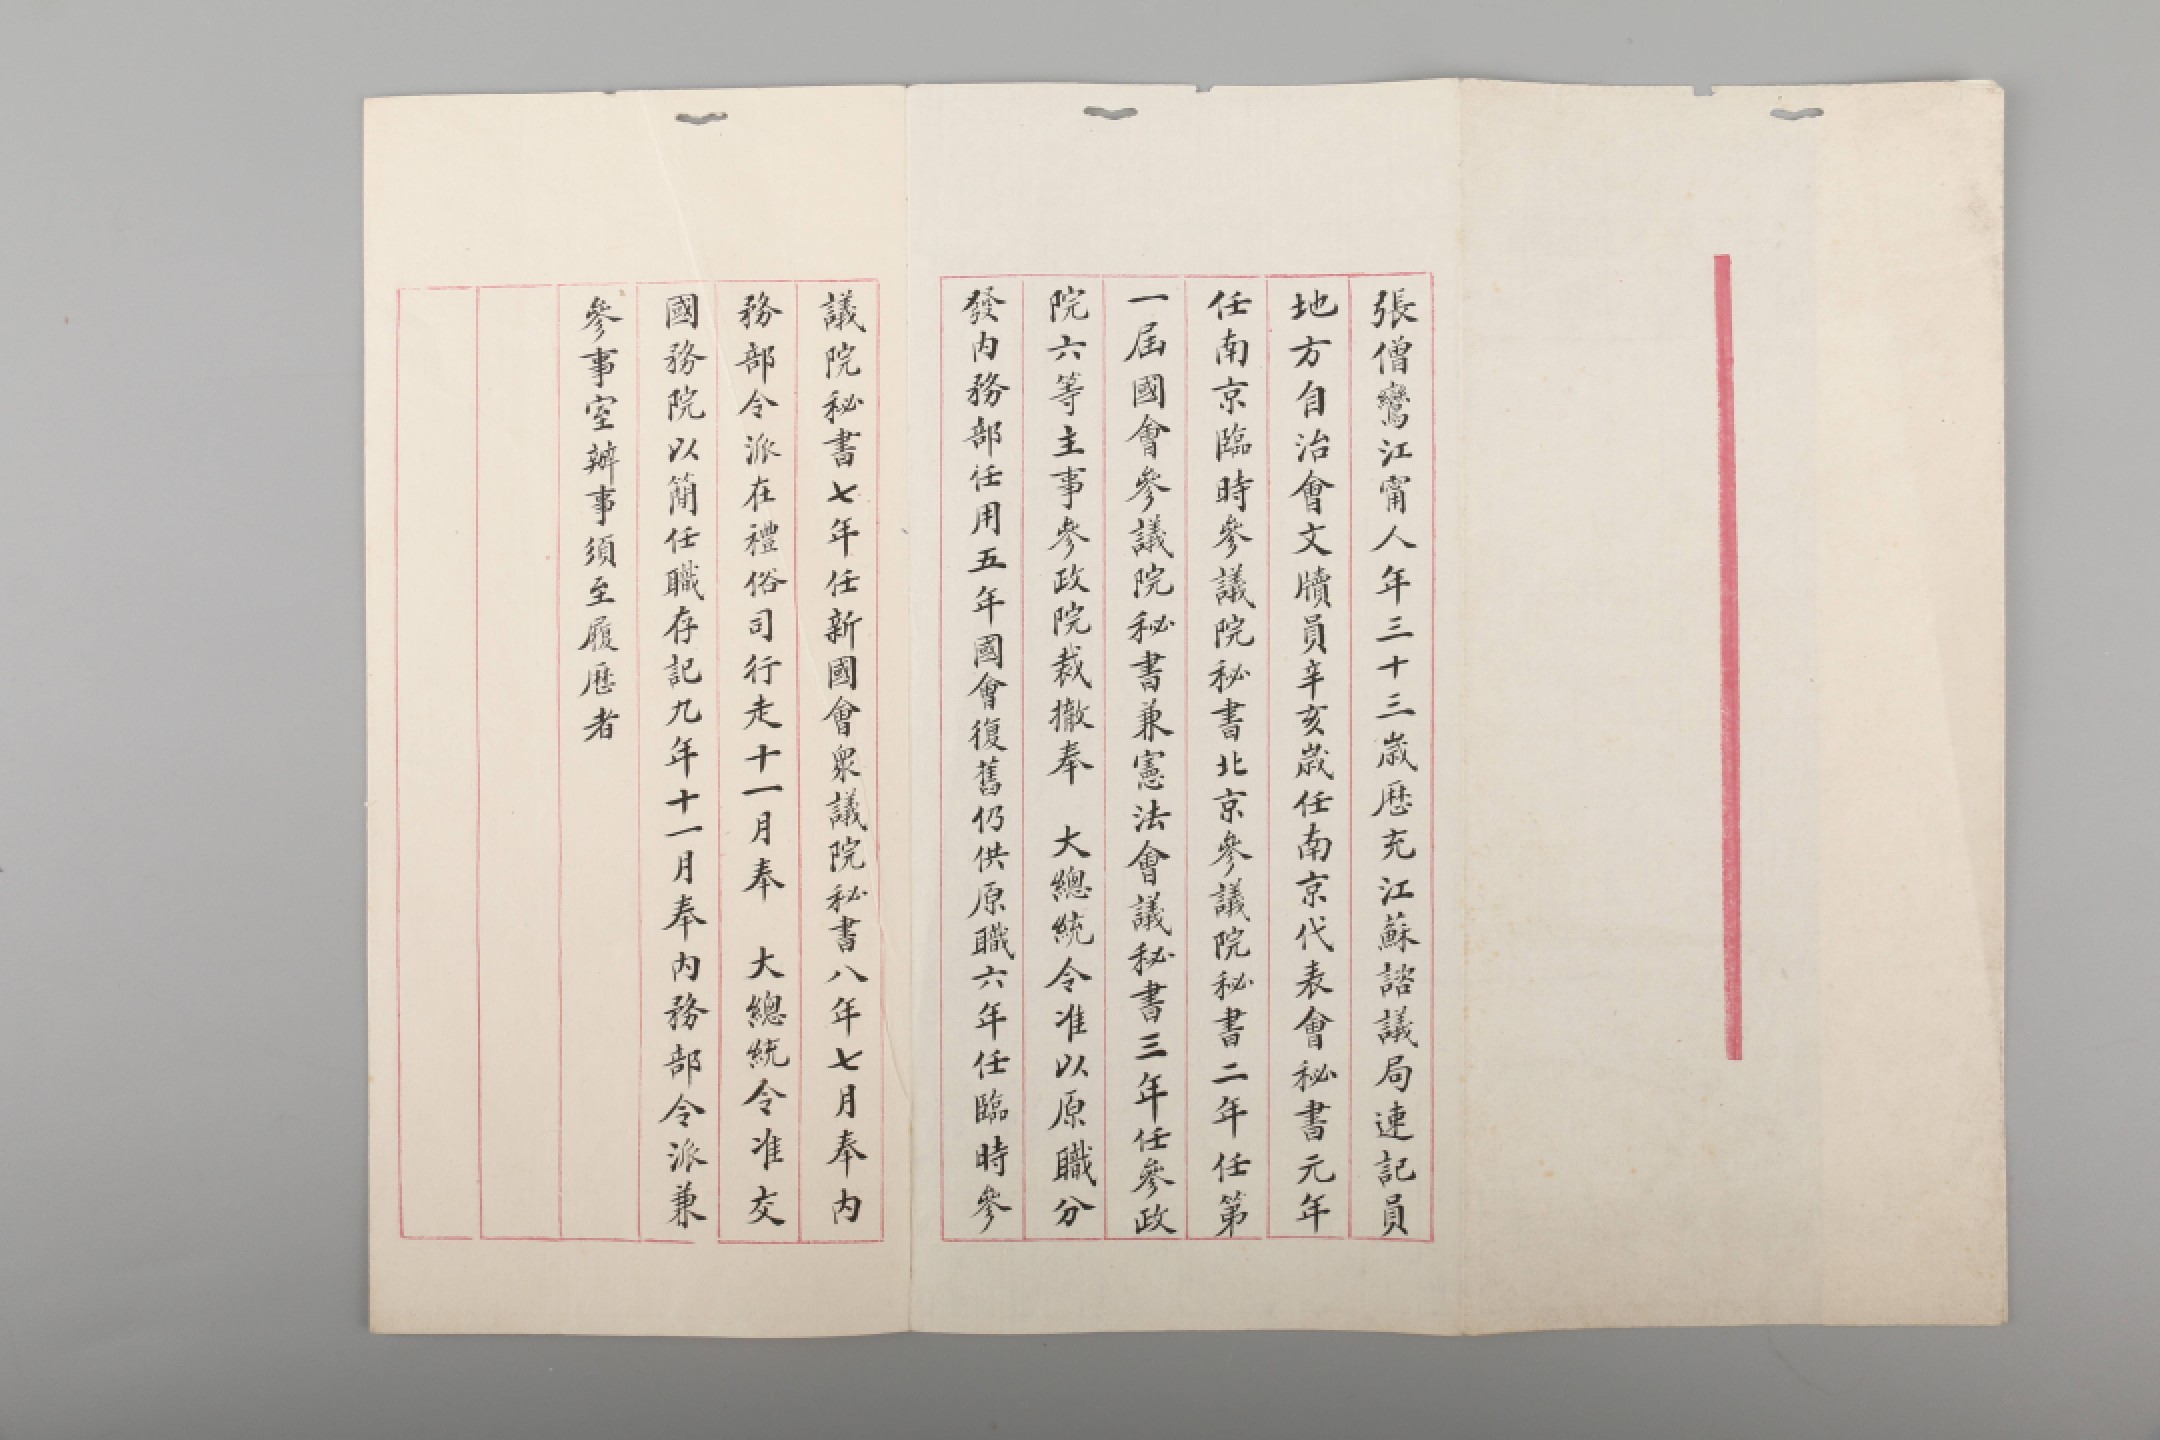 張僧鸞江甯人年三十三歲歷充江蘇諮議局速記員
地方自治會文牘員辛亥歲任南京代表會秘書元年
任南京臨時參議院秘書北京參議院秘書二年任第
一屆國會參議院秘書兼憲法會議秘書三年任參政
院六等主事參政院裁撤奉　大總統令准以原職分
發內務部任用五年國會復舊仍供原職六年任臨時參
議院秘書七年任新國會衆議院秘書八年七月奉內
務部令派在禮俗司行走十一月奉　大總統令准交
國務院以簡任職存記九年十一月奉內務部令派兼
參事室辦事須至履歷者